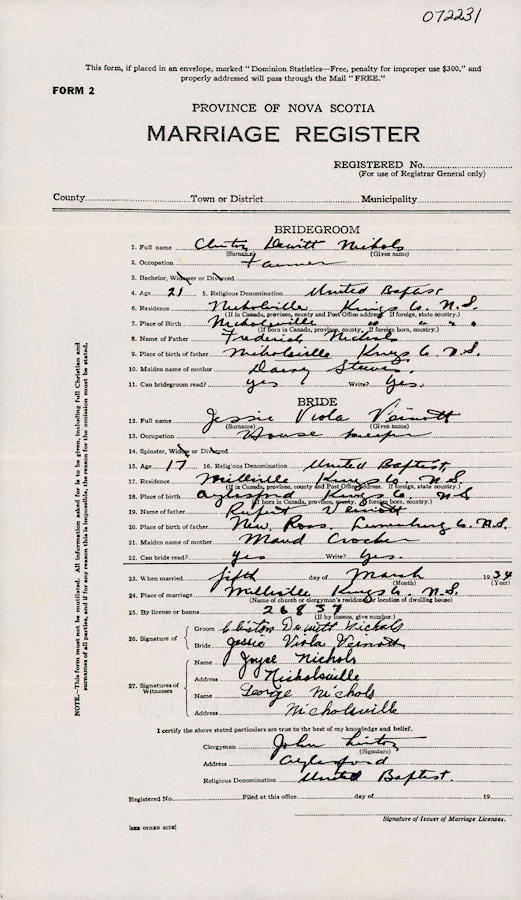 072231
This form, if placed in an envelope, marked "Dominion Statistics—Free, penalty for improper use $300," and
properly addressed will pass through the Mail "FREE."
FORM 2
PROVINCE OF NOVA SCOTIA
MARRIAGE REGISTER
REGISTERED No.
(For use of Registrar General only)
County Town or District Municipality
BRIDEGROOM
1. Full name Clinton Dewitt Nichols
(Surname) (Given name)
2. Occupation Farmer
3. Bachelor, Widower or Divorced
4. Age 21 5. Religious Denomination United Baptist
6. Residence Nicholsville Kings Co. N.S.
(If in Canada, province, county and Post Office address. If foreign, state country.)
7. Place of Birth Nicholsville " " " "
(If born in Canada, province, county. If foreign born, country.)
8. Name of Father Frederick Nichols
9. Place of birth of father Nicholsville Kings Co N.S.
10. Maiden name of mother Daisy
11. Can bridegroom read? yes Write? Yes.
BRIDE
12. Full name Jessie Viola Veinott
(Surname) (Given name)
13. Occupation House keeper
14. Spinster, Widow or Divorced
15. Age 17 16. Religious Denomination United Baptist,
17. Residence Millville Kings Co N.S.
(If in Canada, province, county and Post Office address. If foreign, state country.)
18. Place of birth Aylesford Kings Co N.S
(If born in Canada, province, county. If foreign born, country.)
19. Name of father Rupert Veinott
20. Place of birth of father New Ross Lunenburg Co. N.S.
21. Maiden name of mother Maud Crocker
22. Can bride read? Yes Write? Yes.
23. When married fifth day of March 1934
(Month) (Year)
24. Place of marriage Millville Kings Co. N.S.
(Name of church or clergyman's residence or location of dwelling house)
25. By license or banns 26837
(If by licence, give number.)
26. Signature of
Groom Clinton Dewitt Nichols
Bride Jessie Viola Veinott
27. Signatures of Witnesses
Name Joyce Nichols
Address Nicholsville
Name George Nichols
Address Nicholsville
I certify the above stated particulars are true to the best of my knowledge and belief.
Clergyman John Linton
(Signature)
Address Aylesford
Religious Denomination United Baptist.
Registered No. Filed at this office day of 19
Signature of Issuer of Marriage Licenses.
[SEE OTHER SIDE]
NOTE.—This form must not be mutilated. All information asked for is to be given, including full Christian and
surnames of all parties, and if for any reason this is impossible, the reason for the omission must be stated.